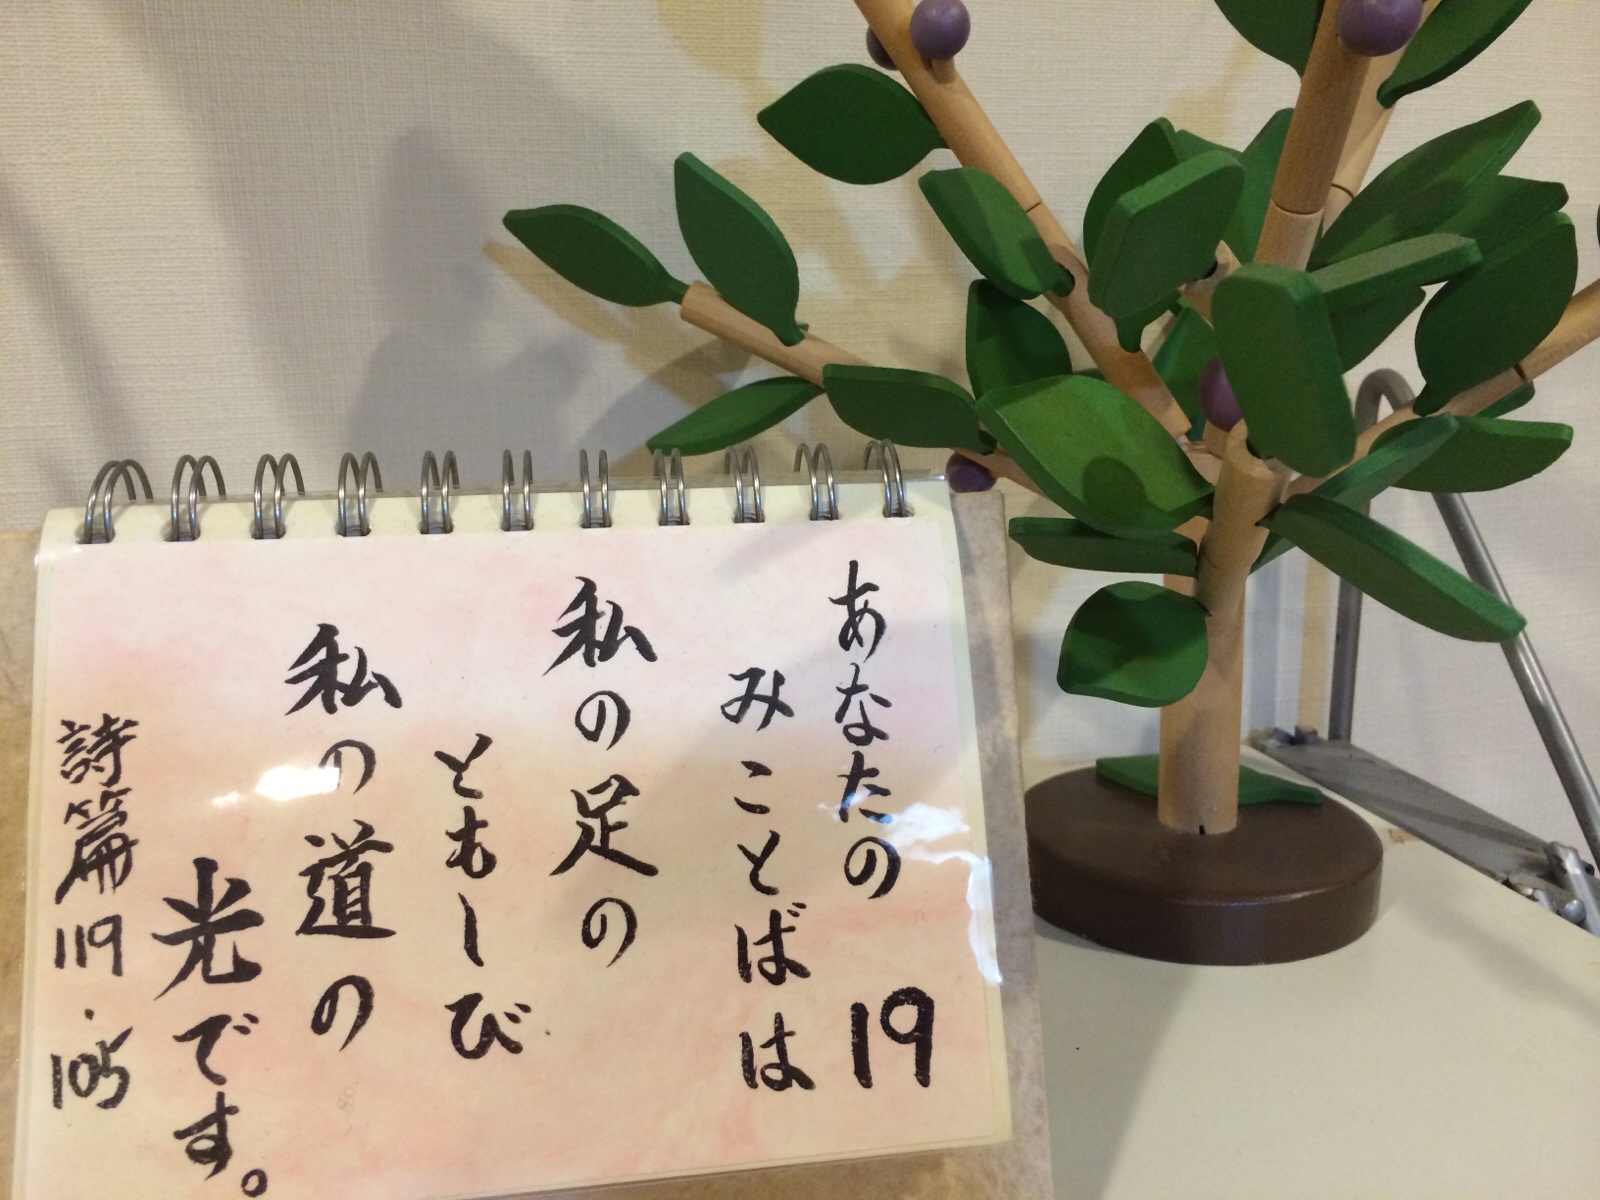 あなたの
みことばは
私の足の
ともしび
私の道の
光です。
詩篇119.105
19